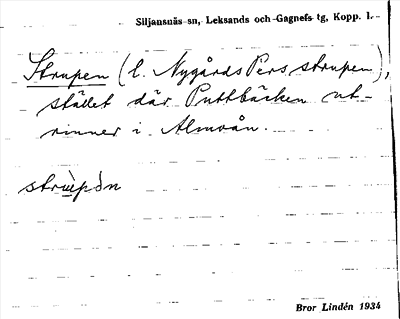 Siljansnäs sn, Leksands och Gagnefs tg, Kopp. l.
Strupen (l. Nygårds Pers strupen),
stället där Puttbäcken ut-
rinner i Almoån.
strùpǝ̀n
Bror Lindén 1934